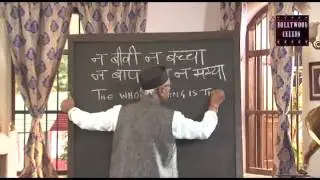 BOLLYWOOD
CELEBS
न बीवी न बच्चा
न बाप न मय्या
THE WHOLE THING IS T